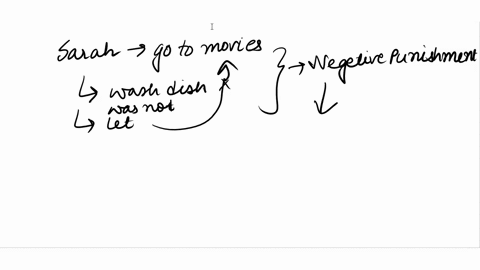 Sarah → go to movies
→ Negetive Punishment
↳ wash dish
was not
↳ let